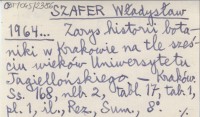 SZAFER Władysław
1964.... Zarys historii bota-
niki w Krakowie na tle sześ-
ciu wieków Uniwersytetu
Jagiellońskiego. – Kraków,
Ss. 168, nlb 2, tabl 17, tab. 1,
pl. 1, il., Rez., Sum., 8°.